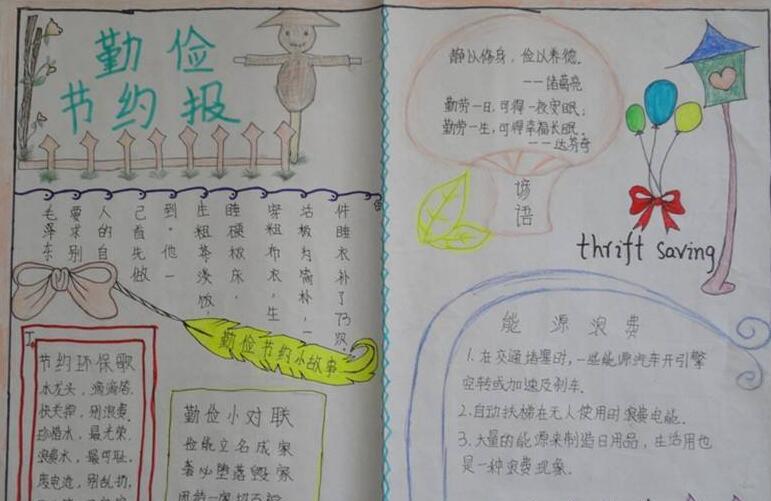 勤俭
节约报
毛泽东
要求别
人的自
己首先做
到。他一
生粗茶淡饭,
睡硬板床,
穿粗布衣,生
活极为简朴,一
件睡衣补了73次,
勤俭节约小故事
节约环保歌
水龙头,滴滴答,
快关掉,别浪费.
珍惜水,最光荣.
浪费水,最可耻.
废电池,别乱扔,
勤俭小对联
俭能立名成家
奢必堕落毁家
静以修身,俭以养德.
——诸葛亮
勤劳一日,可得一夜安眠;
勤劳一生,可得幸福长眠.
——达芬奇
谚语
thrift saving
能源浪费
1.在交通堵塞时,一些能源汽车开引擎
空转或加速及刹车.
2.自动扶梯在无人使用时浪费电能.
3.大量的能源来制造日用品,生活用也
是一种浪费现象.